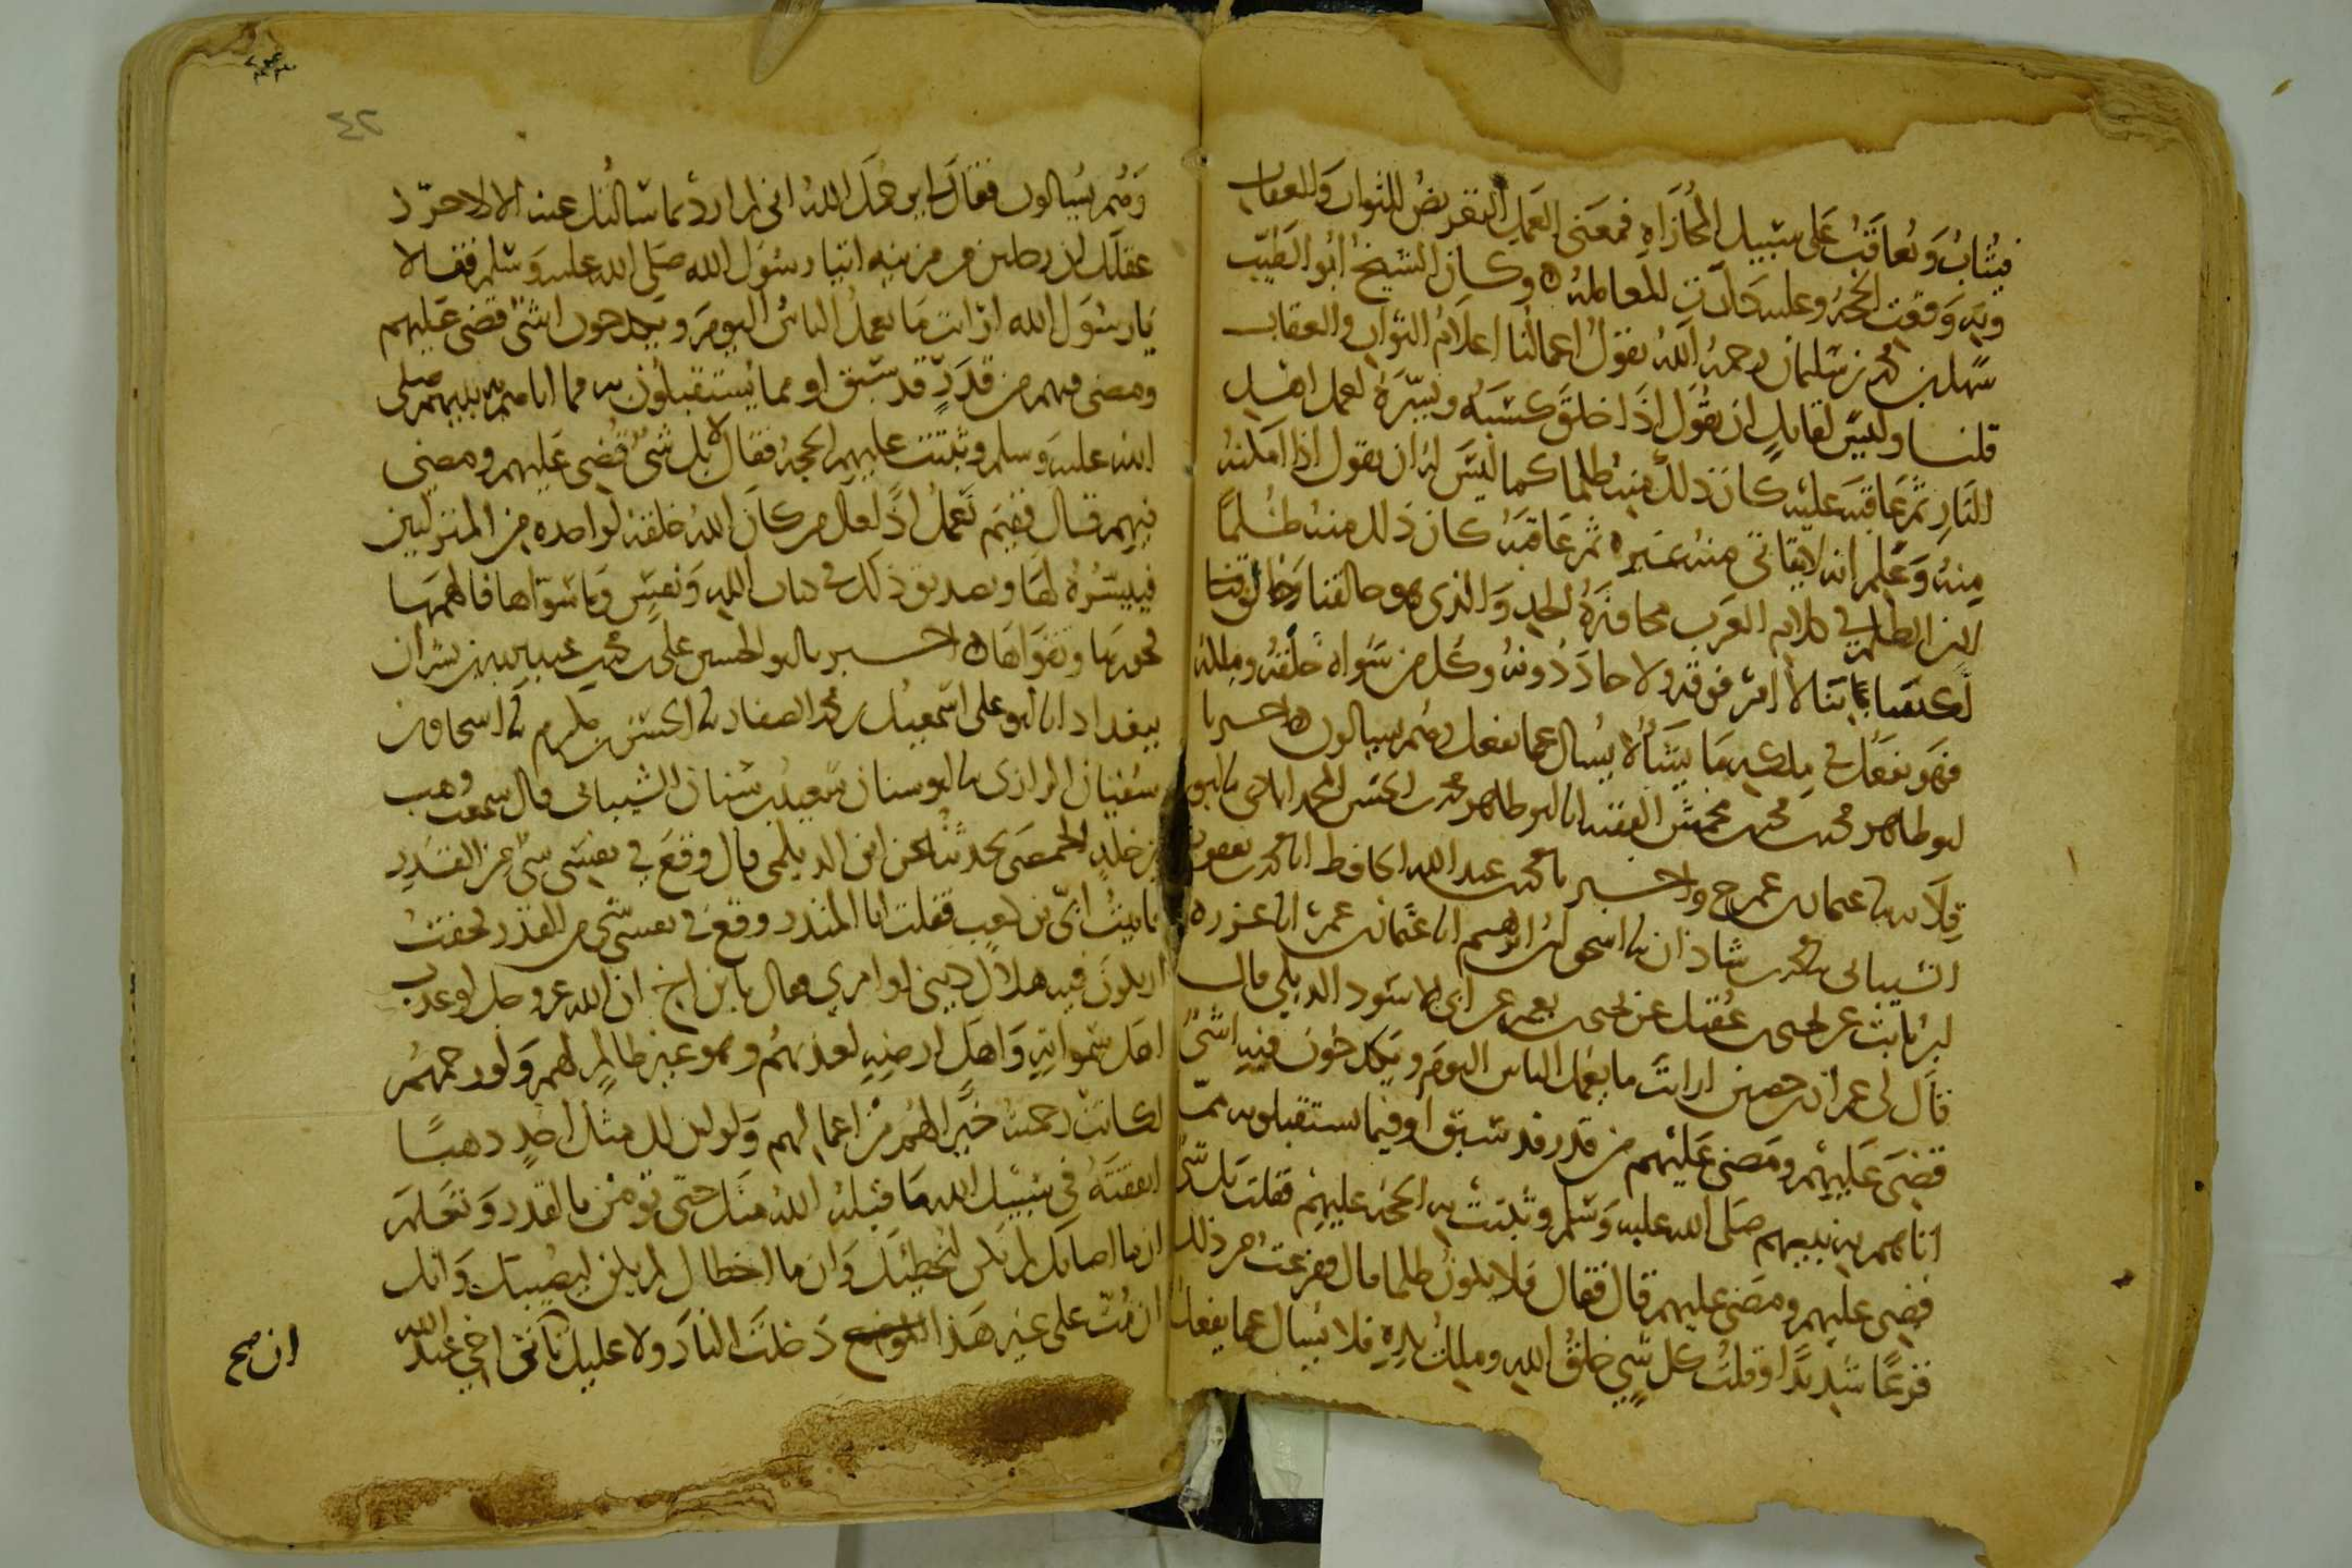 فيثاب ويعاقب على سبيل المجازاه فمعنى العمل التعريض للثواب والعقاب
وبه وقعت الحجة وعليه جازت المعامله ه وكان الشيخ أبو الطيب
سهل بن محمد بن سليمان رحمه الله يقول اعمالنا اعلام الثواب والعقاب
قلنا وليس لقايل ان يقول اذا خلق كسبه ويسره لعمل اهل
النار ثم عاقبه عليه كان ذلك منه ظلما كما ليس له ان يقول اذا امكنه
منه وعلم انه لا يتاتى منه غيره ثم عاقبه كان ذلك منه ظلما
لان الظلم في كلام العرب مجاوزة الحد والذي هو خالقنا وخالق
اكسابنا لا امر فوقه ولا حاد دونه وكل من سواه خلقه وملكه
فهو يفعل في ملكه ما يشأ لا يسال عما يفعل وهم يسالون ه اخبرنا
ابو طاهر محمد بن محمد بن محمش الفقيه انا ابو طاهر محمد بن الحسن المحمداباذي نا ابو
قلابه نا عثمان بن عمر ح واخبرنا محمد بن عبد الله الحافظ انا محمد بن يعقوب
الشيباني نا محمد بن شاذان نا اسحق بن ابرهيم انا عثمان بن عمر انا عزره
بن ثابت عن يحيى بن عقيل عن يحيى بن يعمر عن ابي الاسود الديلي قال
قال لى عمران بن حصين ارايت ما يعمل الناس اليوم ويكدحون فيه اشئ
قضى عليهم ومضى عليهم من قدر قد سبق او فيما يستقبلون به مما
اتاهم به نبيهم صلى الله عليه وسلم وثبتت به الحجه عليهم فقلت بل شئ
قضى عليهم ومضى عليهم قال فقال فلا يكون ظلما قال ففزعت من ذلك
فزعا شديدا وقلت كل شي خلق الله وملك يده فلا يسال عما يفعل
٤٢
وهم يسالون فقال لي يرحمك الله اني لم ارد بما سالتك عنه الا لاحرز
عقلك ان رجلين من مزينه اتيا رسول الله صلى الله عليه وسلم فقالا
يا رسول الله ارايت ما يعمل الناس اليوم ويكدحون اشئ قضى عليهم
ومضى فيهم من قدر قد سبق او مما يستقبلون به مما اتاهم به نبيهم صلى
الله عليه وسلم وثبتت عليهم الحجه فقال لا بل شئ قضى عليهم ومضى
فيهم قال ففيم نعمل اذا قال من كان الله خلقه لواحده من المنزلتين
فييسره لها وتصديق ذلك في كتاب الله ونفس وما سواها فالهمها
فجورها وتقواها ه اخبرنا ابو الحسين على بن محمد بن عبد الله بن بشران
ببغداد انا ابو على اسمعيل بن محمد الصفار نا الحسن بن مكرم نا اسحاق بن
سليمان الرازى نا ابو سنان سعيد بن سنان الشيبانى قال سمعت وهب
بن خالد الحمصى يحدثنا عن ابن الديلمى قال وقع في نفسى شئ من القدر
فاتيت ابى بن كعب فقلت ابا المنذر وقع في نفسى شئ من القدر فخفت
ان يكون فيه هلاك ديني او امري فقال يا بن اخي ان الله عز وجل لو عذب
اهل سمواته واهل ارضه لعذبهم وهو غير ظالم لهم ولو رحمهم
لكانت رحمته خيرا لهم من اعمالهم ولو ان لك مثل احد ذهبا
انفقته في سبيل الله ما قبله الله منك حتى تؤمن بالقدر وتعلم
ان ما اصابك لم يكن ليخطئك وان ما اخطاك لم يكن ليصيبك وانك
ان مت على غير هذا دخلت النار ولا عليك تاتى اخي عبد الله
ان صح